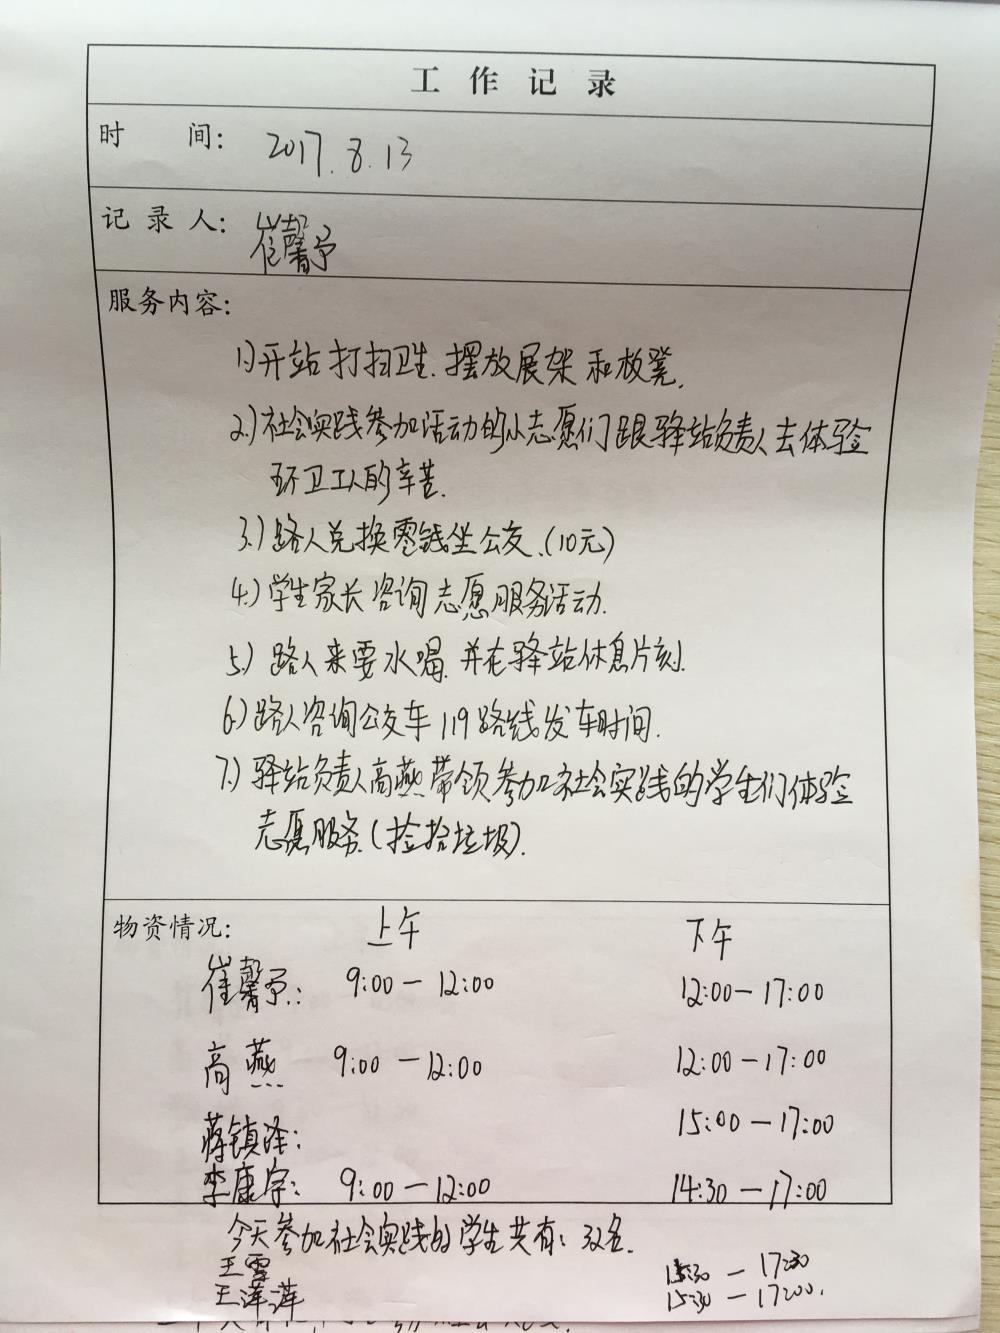 工作记录
时 间: 2017.8.13
记录人: 崔馨予
服务内容:
1)开站打扫卫生.摆放展架和板凳.
2.)社会实践参加活动的小志愿们跟驿站负责人去体验
环卫工人的辛苦.
3.)路人兑换零钱坐公交.(10元)
4.)学生家长咨询志愿服务活动.
5.)路人来要水喝.并在驿站休息片刻.
6.)路人咨询公交车119路线发车时间.
7.)驿站负责人高燕带领参加社会实践的学生们体验
志愿服务.(捡拾垃圾).
物资情况: 上午 下午
崔馨予: 9:00—12:00 12:00—17:00
高燕 9:00—12:00 12:00—17:00
蒋镇泽: 15:00—17:00
李康宇: 9:00—12:00 14:30—17:00
今天参加社会实践的学生共有: 名.
王雪 —
王泽萍 15:30—17:00.